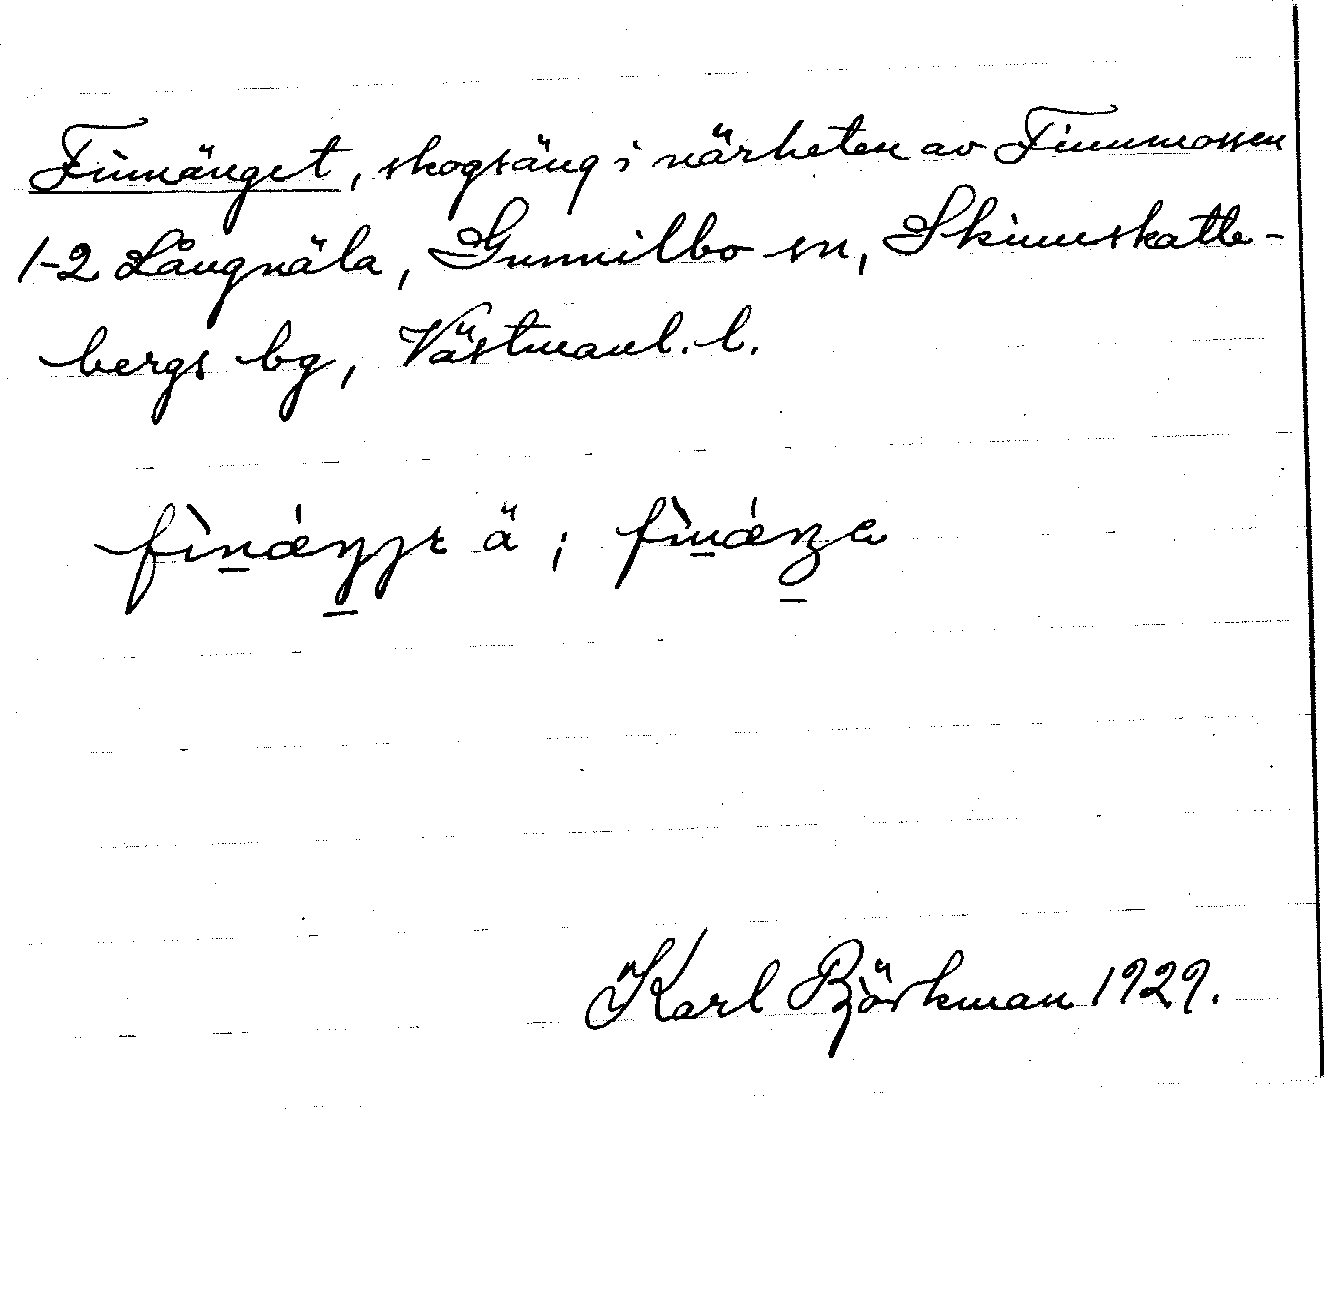 Finnänget, skogsäng i närheten av Finnmossen
1-2 Långnäla, Gunnilbo sn, Skinnskatte-
bergs bg, Västmanl. l.
ä ;
Karl Björkman 1929.